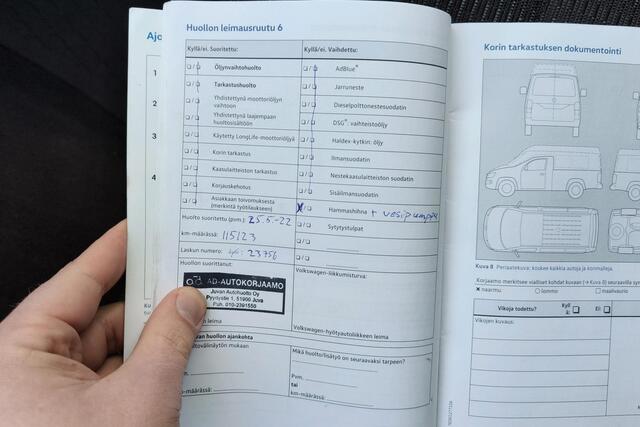 Ajo
1
2
3
4
KU
Huollon leimausruutu 6
Kyllä/ei. Suoritettu:
Öljynvaihtohuolto
Tarkastushuolto
Yhdistettynä moottoriöljyn
vaihtoon
Yhdistettynä laajempaan
huoltosisältöön
Käytetty LongLife-moottoriöljyä
Korin tarkastus
Kaasulaitteiston tarkastus
Korjauskehotus
Asiakkaan toivomuksesta
(merkintä työtilaukseen)
Huolto suoritettu (pvm.) 25.5-22
km-määrässä: 115123
Laskun numero: 23756
Huollon suorittanut:
AD-AUTOKORJAAMO
Juvan Autohuolto Oy
Pyyrytie 1, 51900 Juva
Puh. 010-2391550
n leima
van huollon ajankohta
tovälinäytön mukaan
-määrässä:
Kyllä/ei. Vaihdettu:
AdBlue®
Jarruneste
Dieselpolttonestesuodatin
DSG®: vaihteistoöljy
Haldex-kytkin: öljy
Ilmansuodatin
Nestekaasulaitteiston suodatin
Sisäilmansuodatin
X Hammashihna + vesipumppu
Sytytystulpat
Volkswagen-liikkumisturva:
Volkswagen-hyötyautoliikkeen leima
Mikä huolto/lisätyö on seuraavaksi tarpeen?
Pvm.
tai
km-määrässä:
Korin tarkastuksen dokumentointi
Kuva 8 Periaatekuva: koskee kaikkia autoja ja korimalleja.
Korjaamo merkitsee vialliset kohdat kuvaan (→ Kuva 8) seuraavilla sym
× naarmu
○ lommo
□ maalivaurio
Vikoja todettu?
Kyll
ä:
Ei:
Vikojen kuvaus: